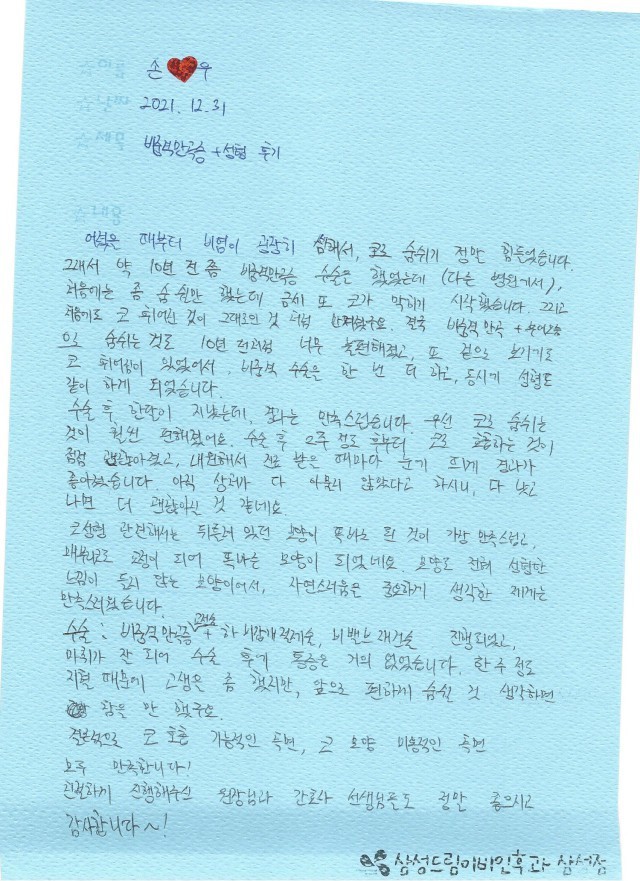 손❤우
2021. 12. 31
비중격만곡증 + 성형 후기
어렸을 때부터 비염이 굉장히 심해서, 코로 숨쉬기 정말 힘들었습니다.
그래서 약 10년 전 쯤 비중격만곡증 수술은 했었는데 (다른 병원에서),
처음에는 좀 숨쉴만 했는데 금새 또 코가 막히기 시작했습니다. 그리고
처음기로 코 휘어진 것이 그대로인 것 처럼 느껴졌구요. 결국 비중격 만곡 +
으로 숨쉬는 것도 10년 전처럼 너무 불편해졌고, 또 겉으로 보기기도
코 휘어짐이 있었어서, 비중격 수술은 한 번 더 하고, 동시에 성형도
같이 하게 되었습니다.
수술 후 한달이 지났는데, 결과는 만족스럽습니다. 우선 코로 숨쉬는
것이 훨씬 편해졌어요. 수술 후 2주 정도 후부터 코로 호흡하는 것이
점점 괜찮아졌고, 내원해서 진료 받은 때마다 눈기 뜨게 결과가
좋아졌습니다. 아직 상처가 다 아물지 않았다고 하시니, 다 낫고
나면 더 괜찮아진 것 같네요.
코성형 관련해서는 뒤틀려 있던 모양이 똑바로 된 것이 가장 만족스럽고,
교정이 되어 모양이 되었네요. 모양도 전혀 성형한
느낌이 들지 않는 모양이어서, 자연스러움은 중요하게 생각한 제게는
만족스러웠습니다.
수술 : 비중격만곡증 교정술 + 하비갑개절제술, 비밸브 재건술 진행되었고,
마취가 잘 되어 수술 후에 통증은 거의 없었습니다. 한 주 정도
지혈 때문에 고생은 좀 했지만, 앞으로 편하게 숨쉴 것 생각하면
참을 만 했구요.
결론적으로 코 호흡 기능적인 측면, 코 모양 미용적인 측면
모두 만족합니다!
친절하게 진행해주신 원장님과 간호사 선생님들도 정말 좋으시고
감사합니다~!
삼성드림이비인후과 삼성점